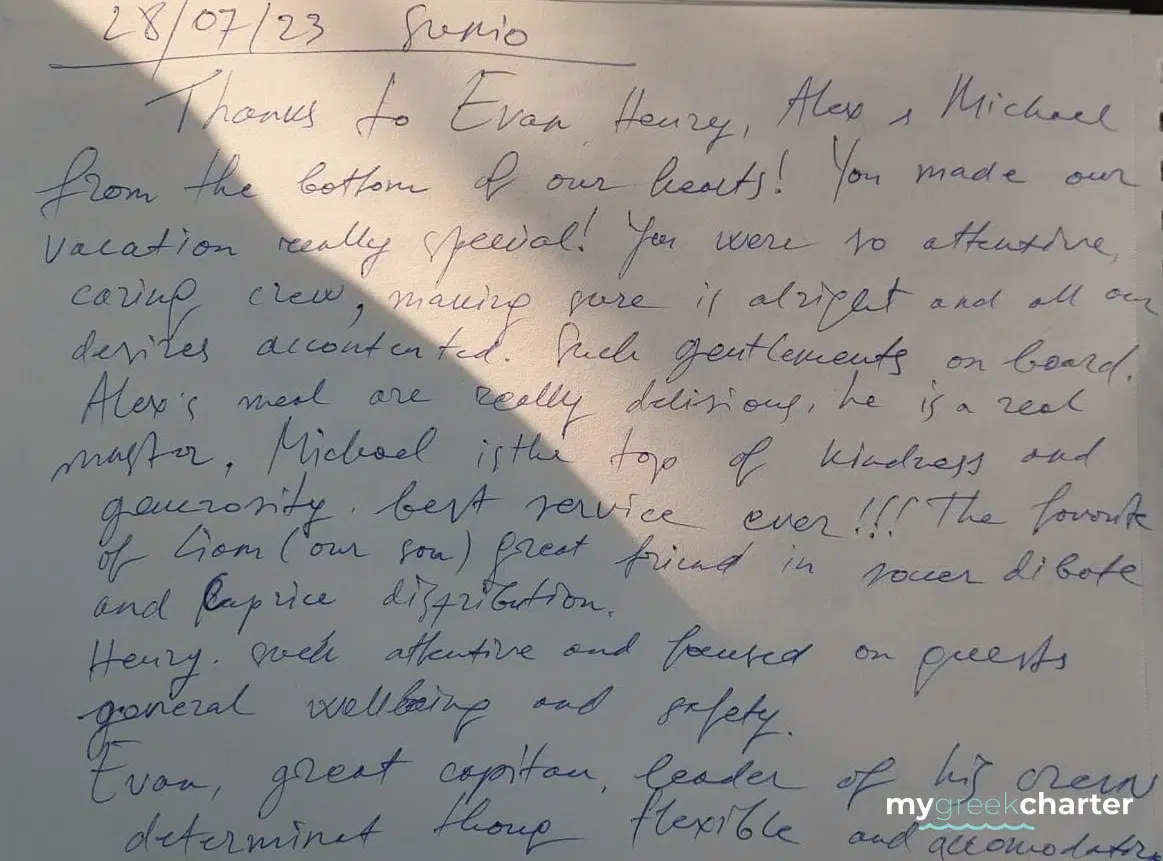 28/07/23
Thanks to Evan, Henry, Alex & Michael
from the bottom of our hearts! You made our
vacation really special! You were so attentive,
caring crew, making sure is alright and all our
desires accontented. Such gentlements on board.
Alex's meal are really delisious, he is a real
master, Michael is the top of kindness and
generosity. best service ever!!! The favorite
of Liam (our son) great friend in soccer dibate
and Caprice distribution.
Henry. such attentive and focused on guests
general wellbeing and safety.
Evan, great capitan, leader of his crew
determinet thoug flexible and accomodating
mygreekcharter